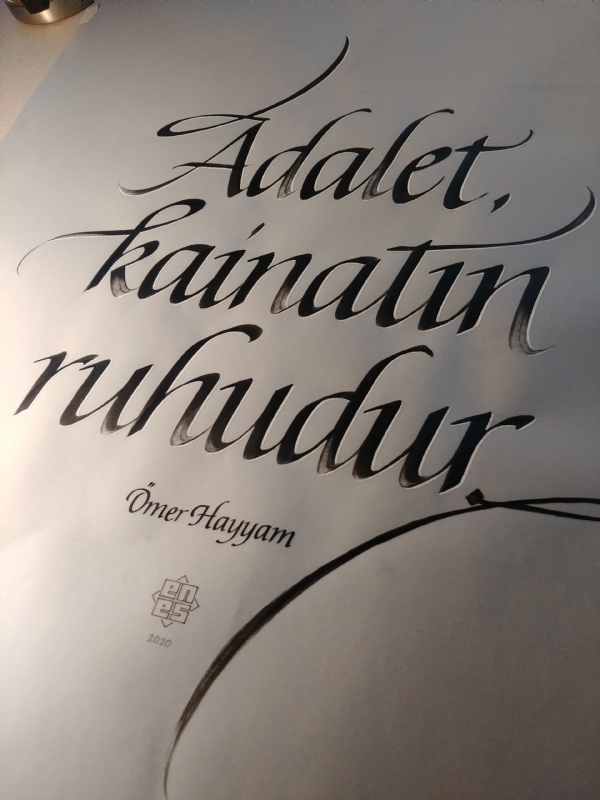 Adalet,
kainatın
ruhudur.
Ömer Hayyam
en
es
2020